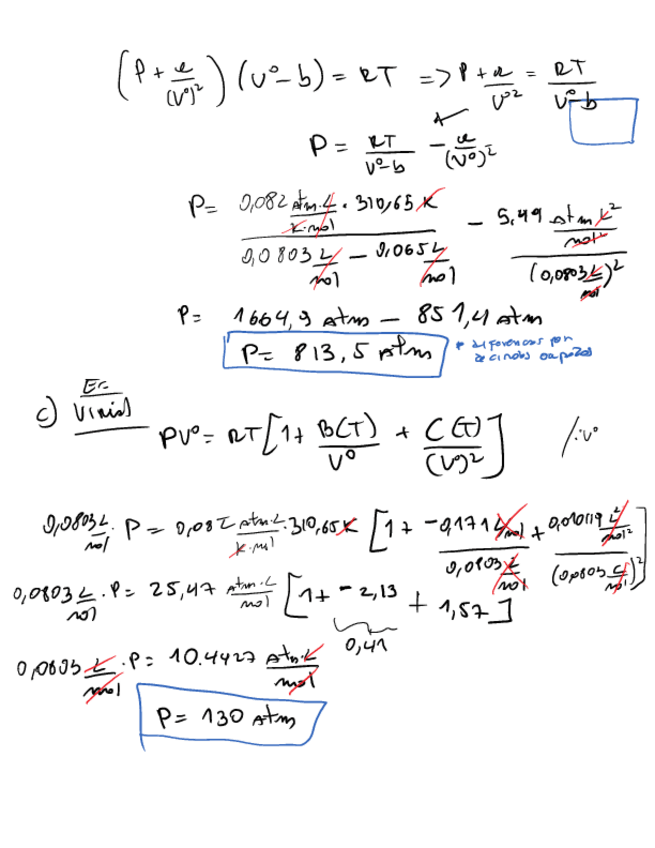 (P + a/(V°)²) (V° − b) = RT => P + a/V°² = RT/V°−b
P = RT/V°−b − a/(V°)²
P = 0,082 Atm·L/K·mol · 310,65 K / 0,0803 L/mol − 0,065 L/mol − 5,49 Atm L²/mol² / (0,0803 L/mol)²
P = 1664,9 Atm − 851,4 Atm
P = 813,5 Atm
* diferencias por
c) Ec. Virial
PV° = RT [1 + B(T)/V° + C(T)/(V°)²] /:V°
0,0803 L/mol · P = 0,082 Atm·L/K·mol · 310,65 K [1 + −0,171 L/mol / 0,0803 L/mol + 0,010119 L²/mol² / (0,0803 L/mol)²]
0,0803 L/mol · P = 25,47 Atm·L/mol [1 + −2,13 + 1,57]
0,41
0,0803 L/mol · P = 10.4427 Atm·L/mol
P = 130 Atm